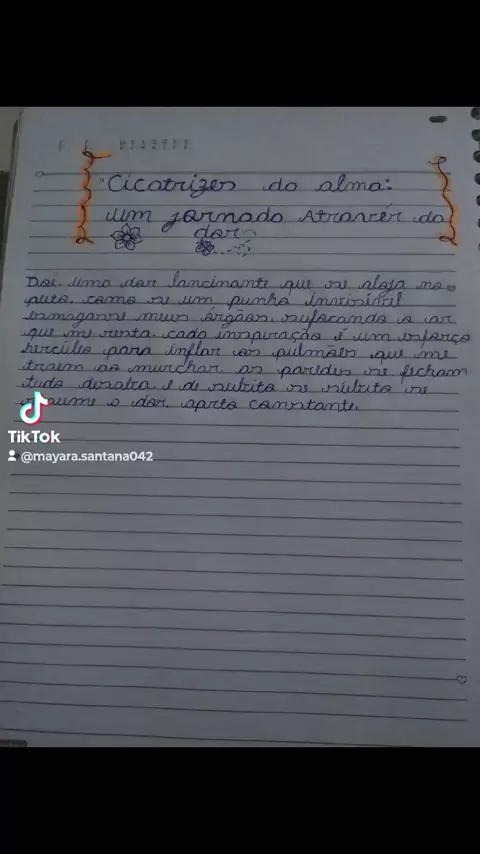 "Cicatrizes da alma:
um jornada Atravér da
dor
Doí, uma dor lancinante que se aloja no
peito, como se um punho invisível
esmagasse meus órgãos, sufocando o ar
que me resta, cada inspiração é um esforço
hercúleo para inflar os pulmões que me
traem ao murchar, as paredes se fecham
tudo desaba e de súbito se súbito se
resume o dor, aperto constante.
TikTok
@mayara.santana042